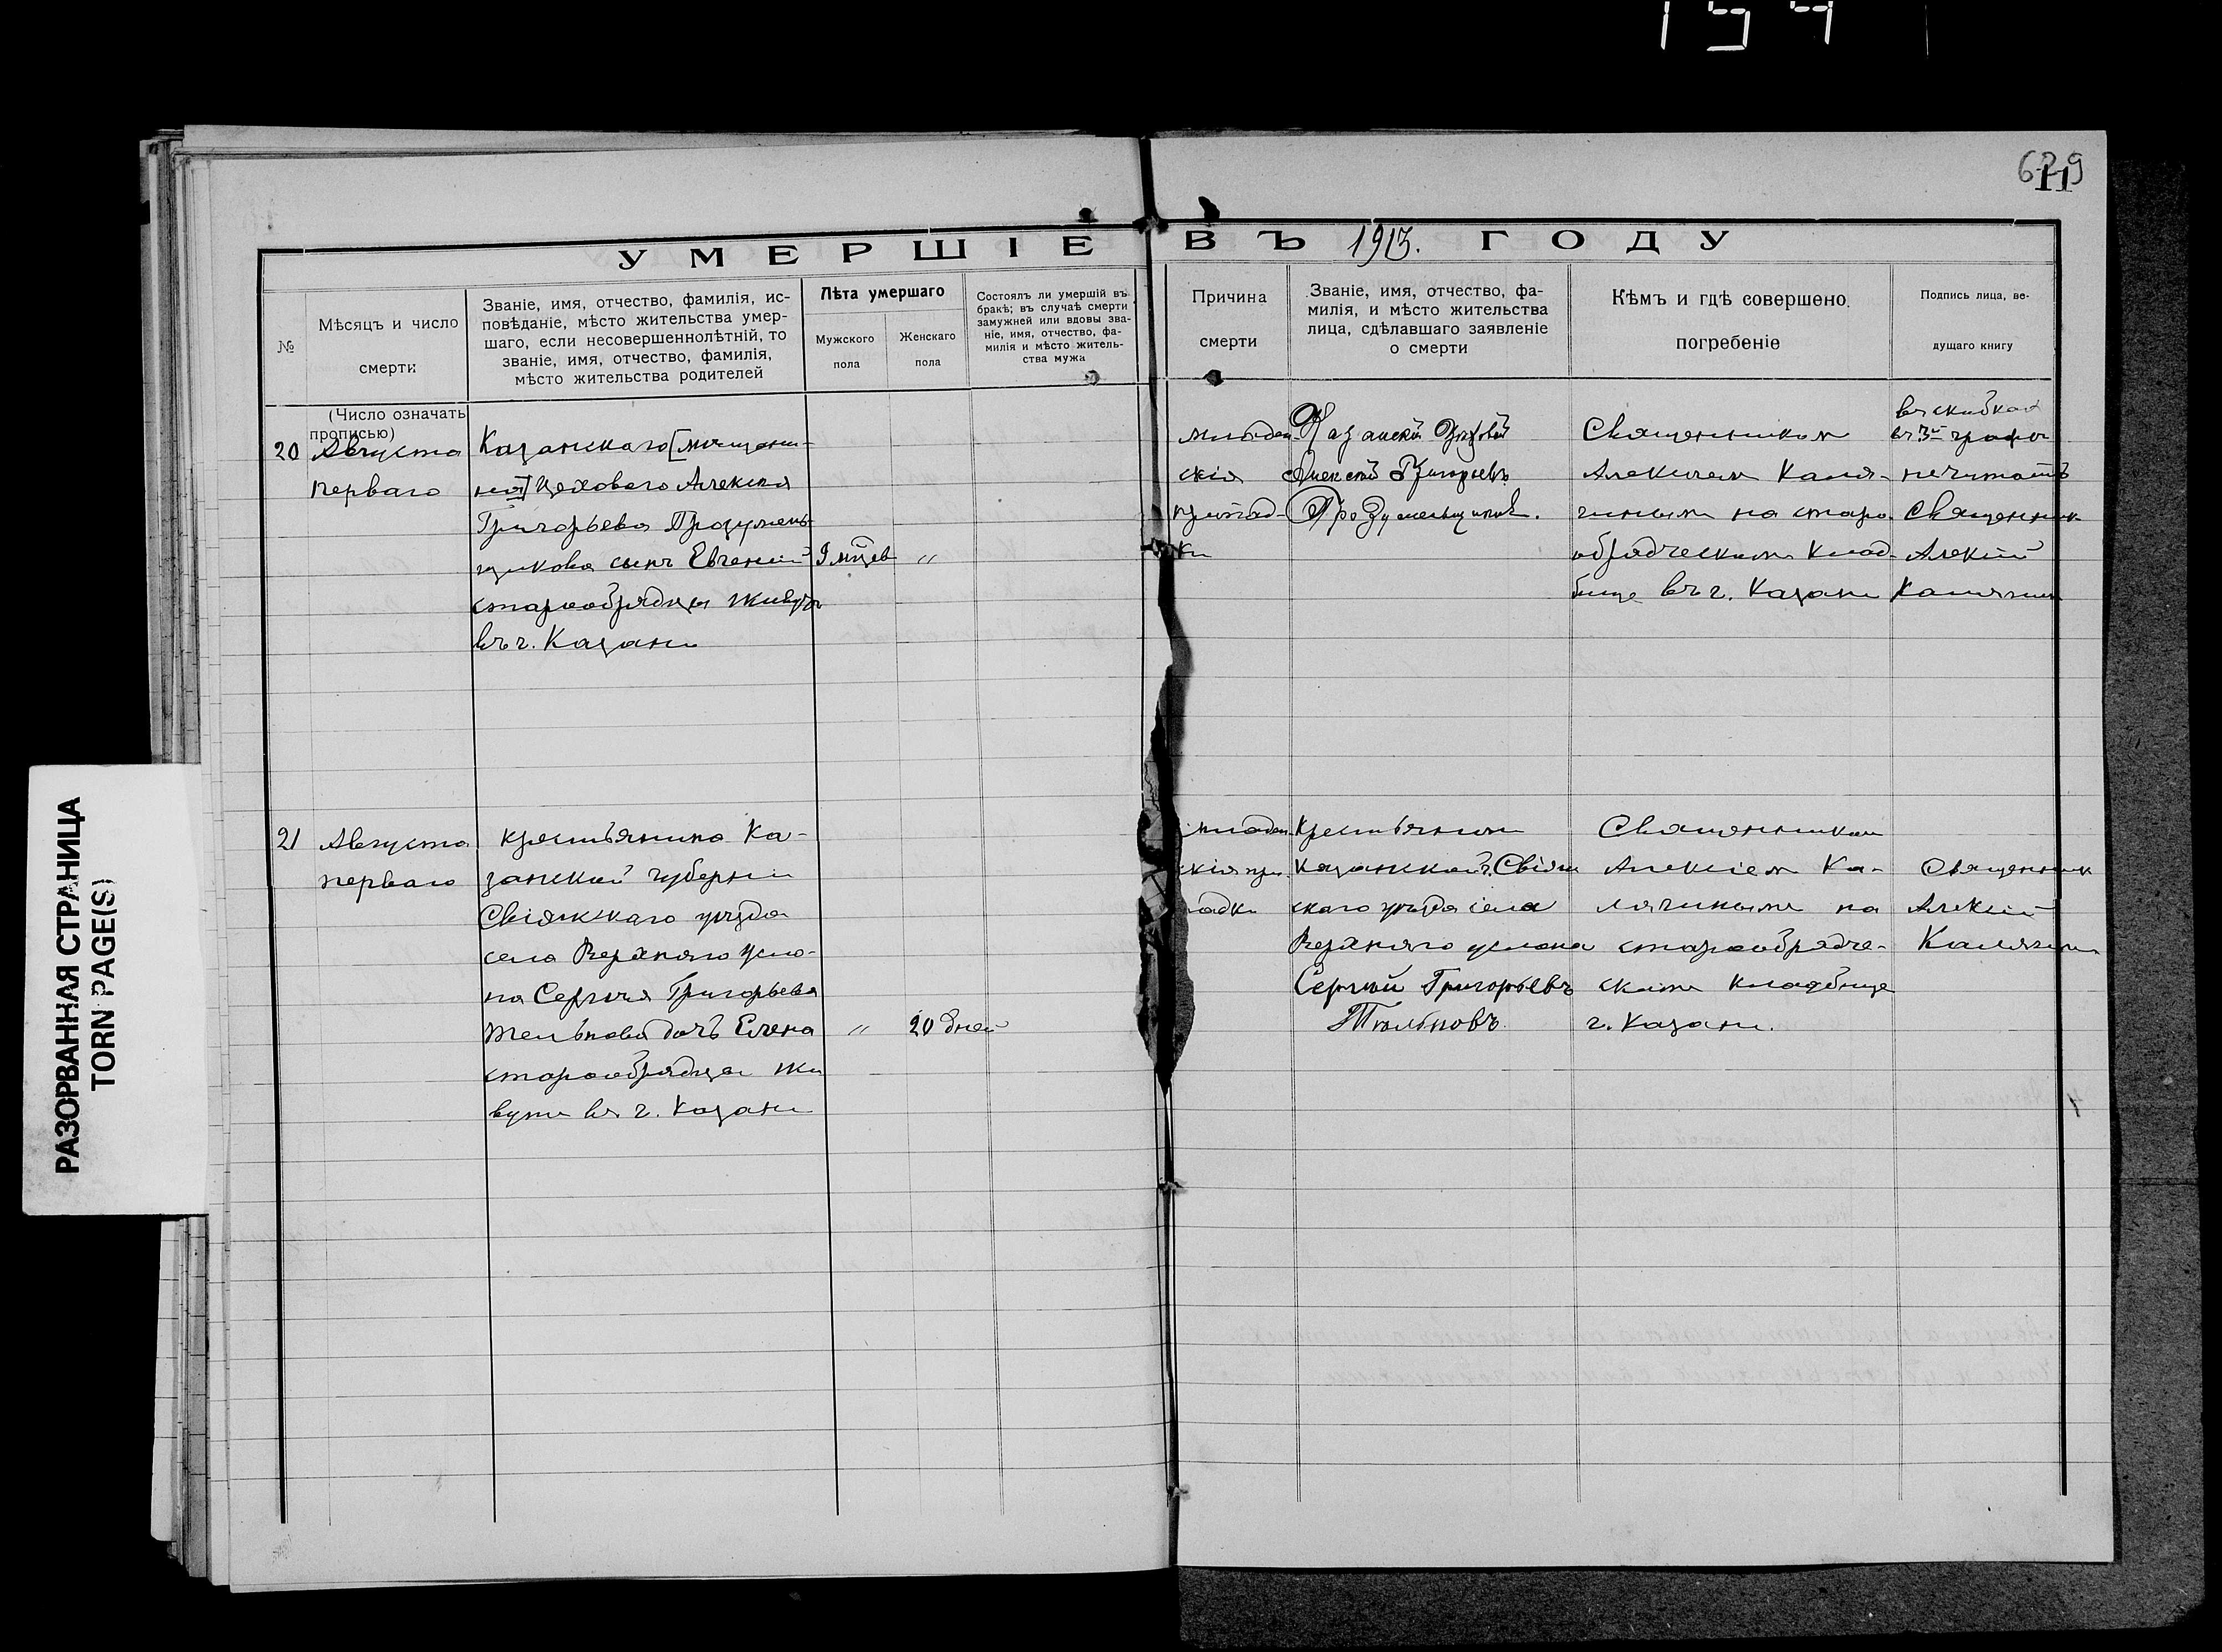 629
11
УМЕРШІЕ ВЪ 1913. ГОДУ
№
Мѣсяцъ и число
смерти
Званіе, имя, отчество, фамилія, ис-
повѣданіе, мѣсто жительства умер-
шаго, если несовершеннолѣтній, то
званіе, имя, отчество, фамилія,
мѣсто жительства родителей
Лѣта умершаго
Мужского
пола
Женскаго
пола
Состоялъ ли умершій въ
бракѣ; въ случаѣ смерти
замужней или вдовы зва-
ніе, имя, отчество, фа-
милія и мѣсто житель-
ства мужа
Причина
смерти
Званіе, имя, отчество, фа-
милія, и мѣсто жительства
лица, сдѣлавшаго заявленіе
о смерти
Кѣмъ и гдѣ совершено
погребеніе
Подпись лица, ве-
дущаго книгу
(Число означать
прописью)
20
Августа
перваго
Казанскаго [мещани-
на] Цехового Алексея
Григорьева Продумень-
щикова сынъ Евгений
старообрядцы живутъ
въ г. Казани
9 мцев
"
младен-
скія
припад-
ки
Казанскій Цеховой
Алексей Григорьевъ
Священником
Алексием Каля-
гиным на старо-
обрядческом клад-
бище въ г. Казани
въ скобках
въ 3й графе
не читать
Священник
Алексий
Калягин
21
Августа
перваго
крестьянина Ка-
занской губернии
Свіяжскаго уезда
села Верхняго Усло-
на Сергея Григорьева
дочь Елена
старообрядцы жи
вутъ въ г. Казани
"
20 дней
младен-
скія при
падки
Крестьянин
Казанской г. Свіяж
скаго уезда села
Верхняго услона
Сергей Григорьевъ
Священником
Алексіем Ка-
лягиным на
старообрядче-
ском кладбище
г. Казани.
Священник
Алексий
Калягин
РАЗОРВАННАЯ СТРАНИЦА
TORN PAGE(S)